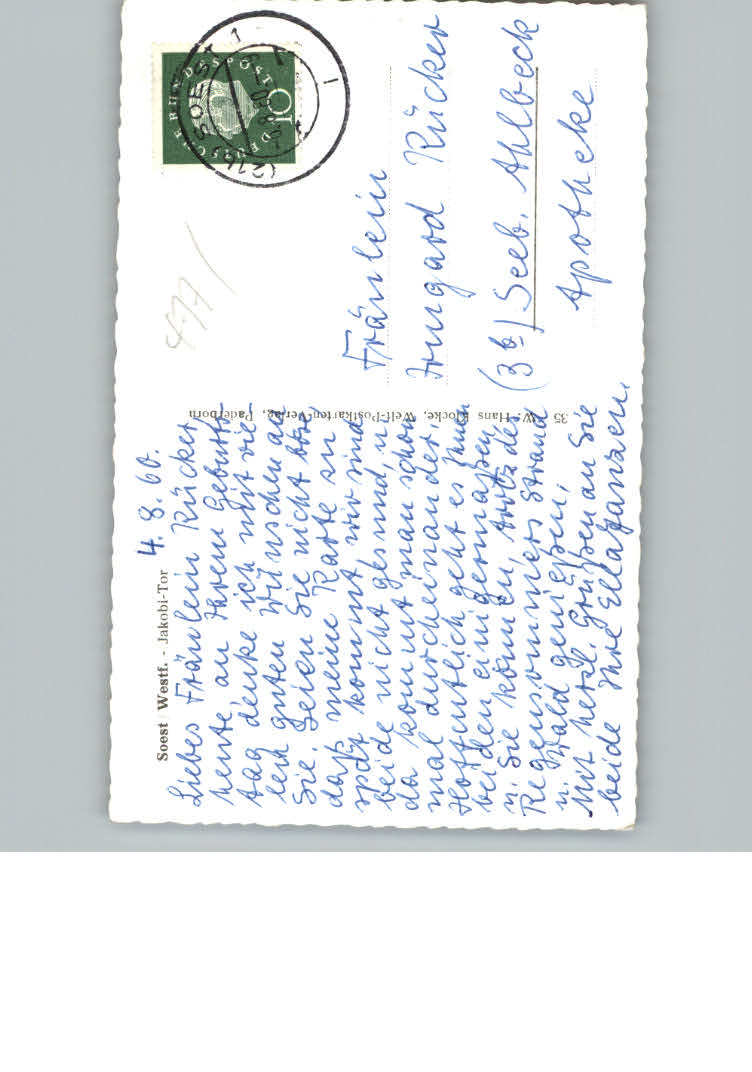 Soest Westf. - Jakobi-Tor
4. 8. 60.
Liebes Fräulein Rücker,
heute, an Ihrem Geburts-
tag denke ich mit vie-
len guten Wünschen an
Sie. Seien Sie nicht böse,
daß meine Karte zu
spät kommt, wir sind
beide nicht gesund, u.
da kommt man schon
mal durcheinander.
Hoffentlich geht es Ihnen
beiden einigermaßen
u. Sie können, trotz des
Regensommers Strand
u. Wald genießen.
Mit herzl. Grüßen an Sie
beide Ihre Ella
35 W. Hans Klocke, Welt-Postkarten-Verlag, Paderborn
DEUTSCHE BUNDESPOST
10
SOEST 1
Fräulein
Irmgard Rücker
(3b) Seeb. Ahlbeck
Apotheke
477/